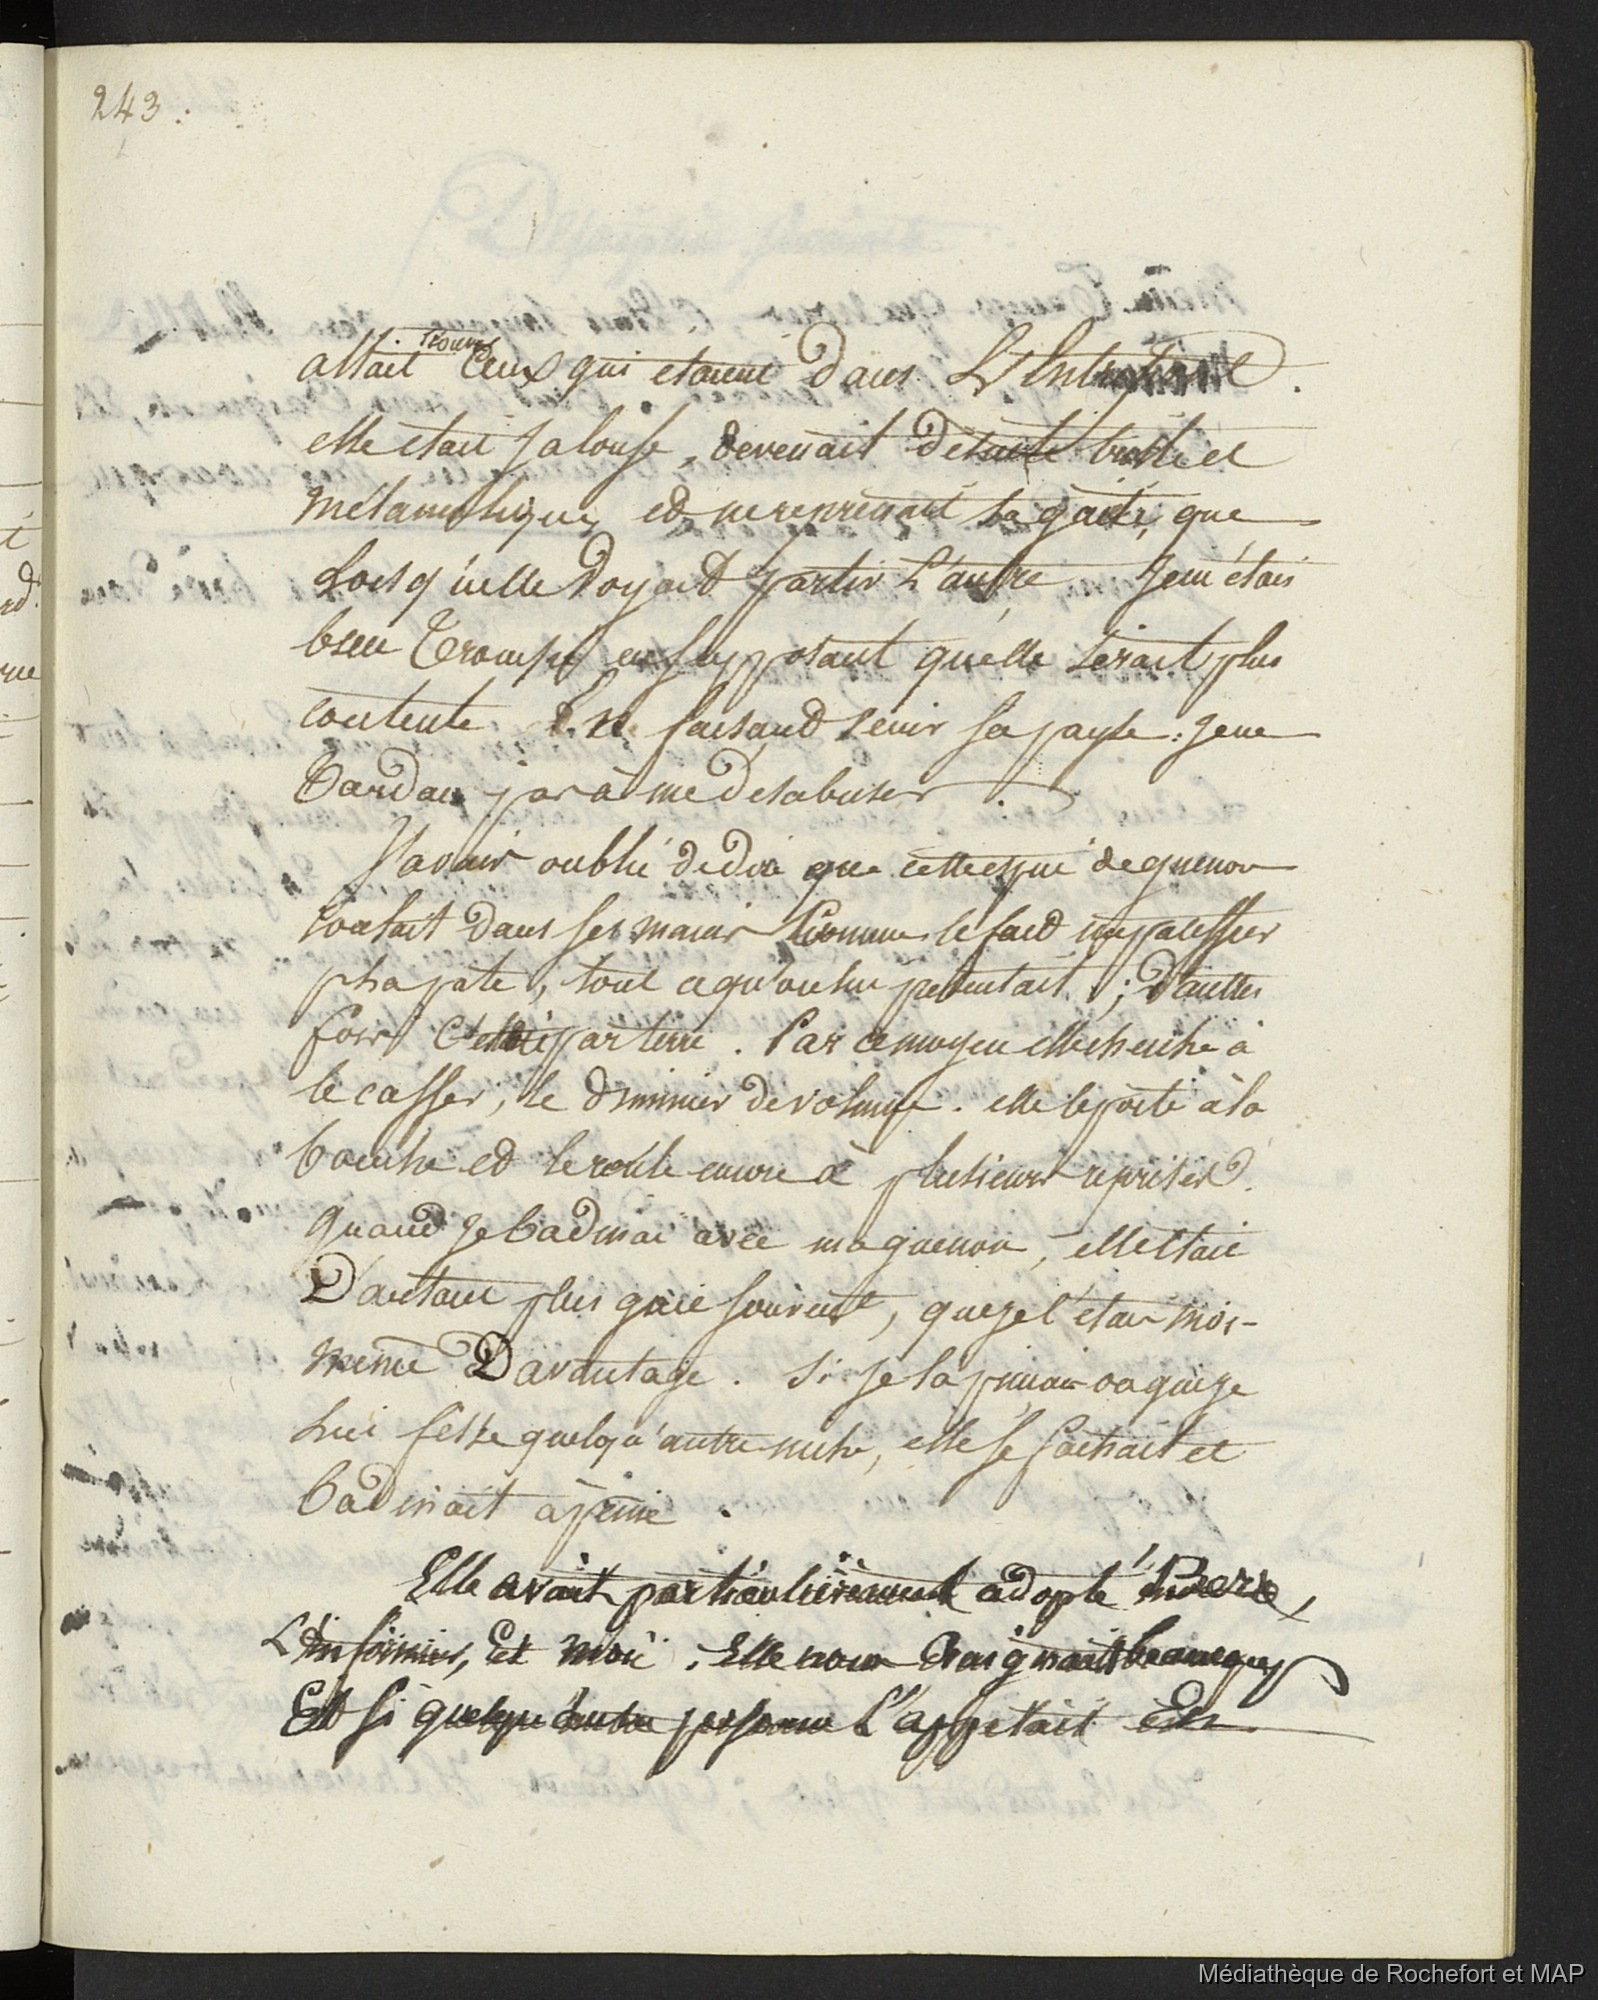 243.
allait trouver ceux qui etaient dans L'Entrepont.
elle etait Jalouse, devenait de suite triste et
mélancholique, et ne reprenait sa gaité, que
Lorsqu'elle Voyait partir L'autre. Je m'étais
bien Trompé en supposant quelle serait plus
contente en faisant venir sa payse : je ne
Tardais pas à me désabuser.
J'avais oublié de dire que cette espece de guenon
roulait dans ses mains Comme le fait un patissier
sa pate, tout ce qu'on lui présentait ; D'autres
fois C'etait par terre. Par ce moyen elle cherche à
le casser, le diminuer de volume. elle le porte à la
bouche et le roule encore à plusieurs reprises.
Quand je badinai avec ma guenon, elle etait
D'autant plus gaie souvent, que je l'etais moi-
meme Davantage. Si je la pincais ou que je
Lui fesse quelqu'autre niche, elle se fachait et
badinait à peine.
Elle avait particulièrement adopté Pierre,
L'infirmier, Et moi. Elle nous Craignait beaucoup
Et si quelqu'autre personne L'appelait Elle
Médiathèque de Rochefort et MAP